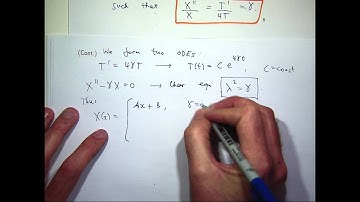 such that X''/X = T'/4T = γ.
(Cont.) We form two ODEs:
T' = 4γT → T(t) = C e^{4γt}, C = const
X'' - γX = 0 → Char eqn λ² = γ
Thus
X(x) = { Ax + B, γ =